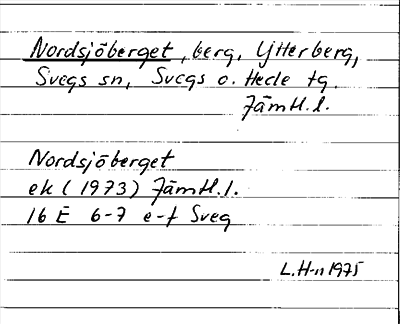 Nordsjöberget, berg, Ytterberg,
Svegs sn, Svegs o. Hede tg.
Jämtl.l.
Nordsjöberget
ek (1973) Jämtl.l.
16 E 6-7 e-f Sveg
L.H-n 1975